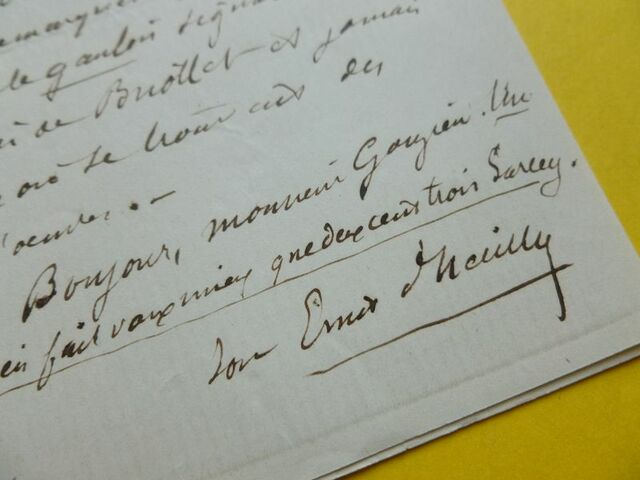 le gaulois signa
de Buottet et jamais
où se trouv des
Bonjour, monsieur Gouzien. Un
fait vaux mieux que deux cent trois Sarcey.
ton Ernest d'Hervilly